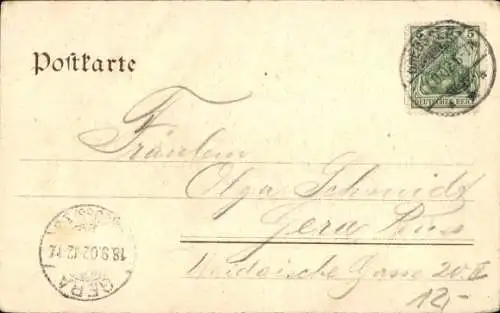 Postkarte
5
DEUTSCHES REICH
Fräulein
Olga Schmidt
Gera Reuss
Gasse 20. II
GERA
18.9.02.12-1
12,-